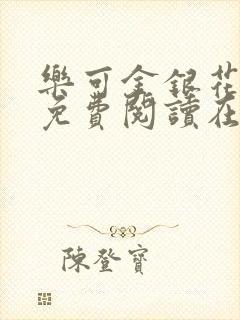 樂可金銀花
免費閱讀在
陳登寶